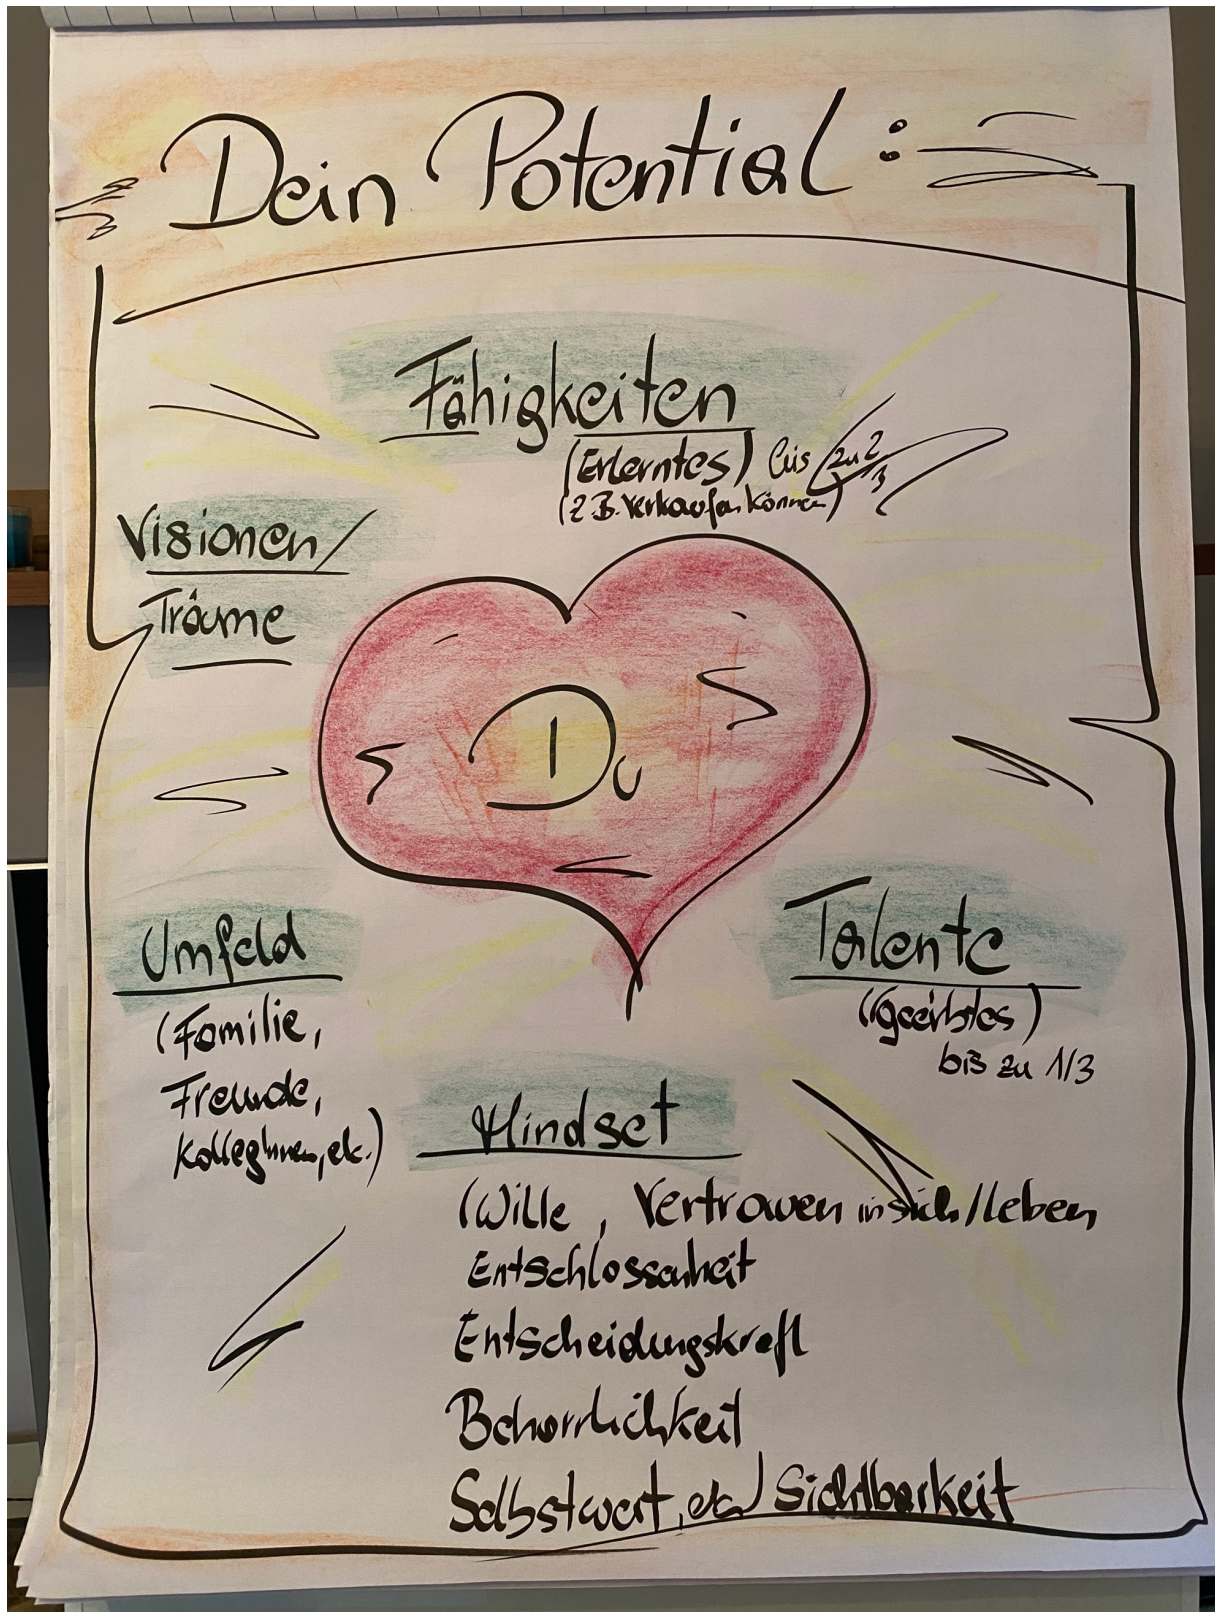 Dein Potential:
Fähigkeiten
(Erlerntes) bis zu 2/3
(z.B. Verkaufen können)
Visionen/
Träume
Du
Umfeld
(Familie,
Freunde,
KollegInnen, etc.)
Talente
(Geerbtes)
bis zu 1/3
Mindset
(Wille, Vertrauen in sich/Leben
Entschlossenheit
Entscheidungskraft
Beharrlichkeit
Selbstwert, etc.) Sichtbarkeit